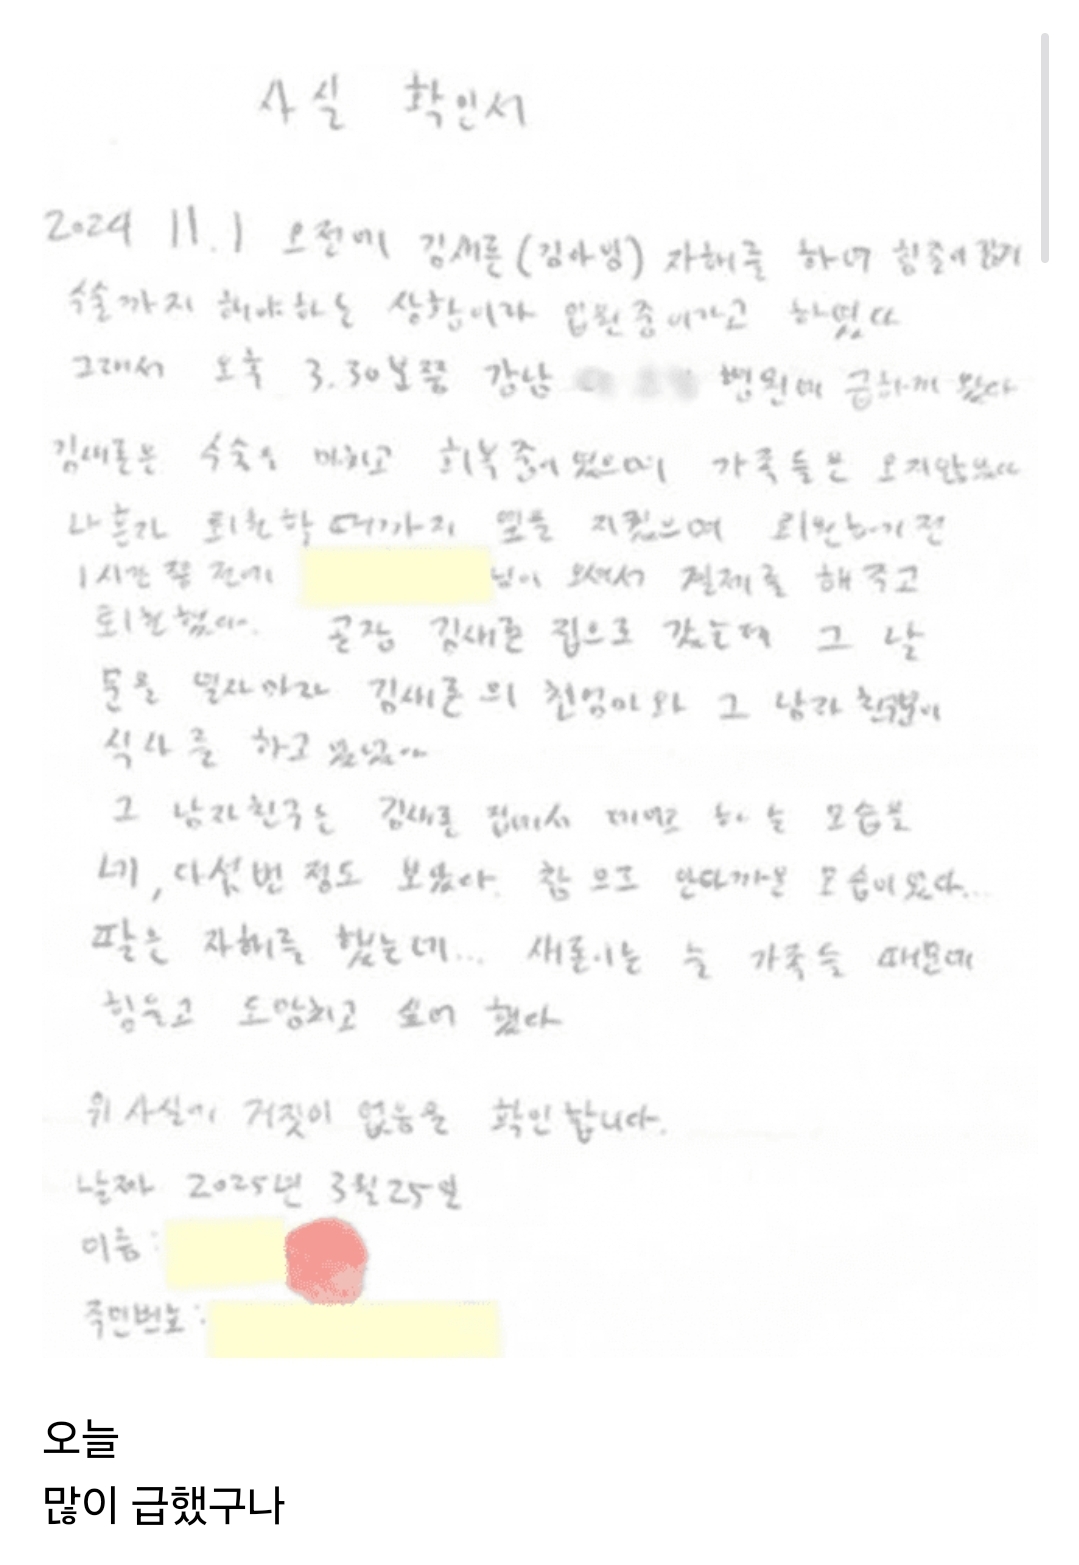 사실 확인서
2024 11.1 오전에 김새론(김아임) 자해를 하여 힘줄이 끊겨
수술까지 해야하는 상황이라 입원중이라고 하였다
그래서 오후 3.30분쯤 강남 병원에 급하게 갔다
김새론은 수술을 마치고 회복중에 있으며 가족들은 오지않았다
나 혼자 퇴원할 때까지 옆을 지켰으며 퇴원하기전
1시간 쯤 전에 님이 오셔서 결제를 해주고
퇴원했다. 곧장 김새론 집으로 갔는데 그 날
문을 열자마자 김새론의 친엄마와 그 남자친구분이
식사를 하고 있었다
그 남자친구는 김새론 집에서 하는 모습을
네, 다섯번 정도 보았다. 참으로 안타까운 모습이었다...
팔은 자해를 했는데... 새론이는 늘 가족들 때문에
힘들고 도망치고 싶어 했다
위 사실에 거짓이 없음을 확인합니다.
날짜 2025년 3월 25일
이름:
주민번호:
오늘
많이 급했구나